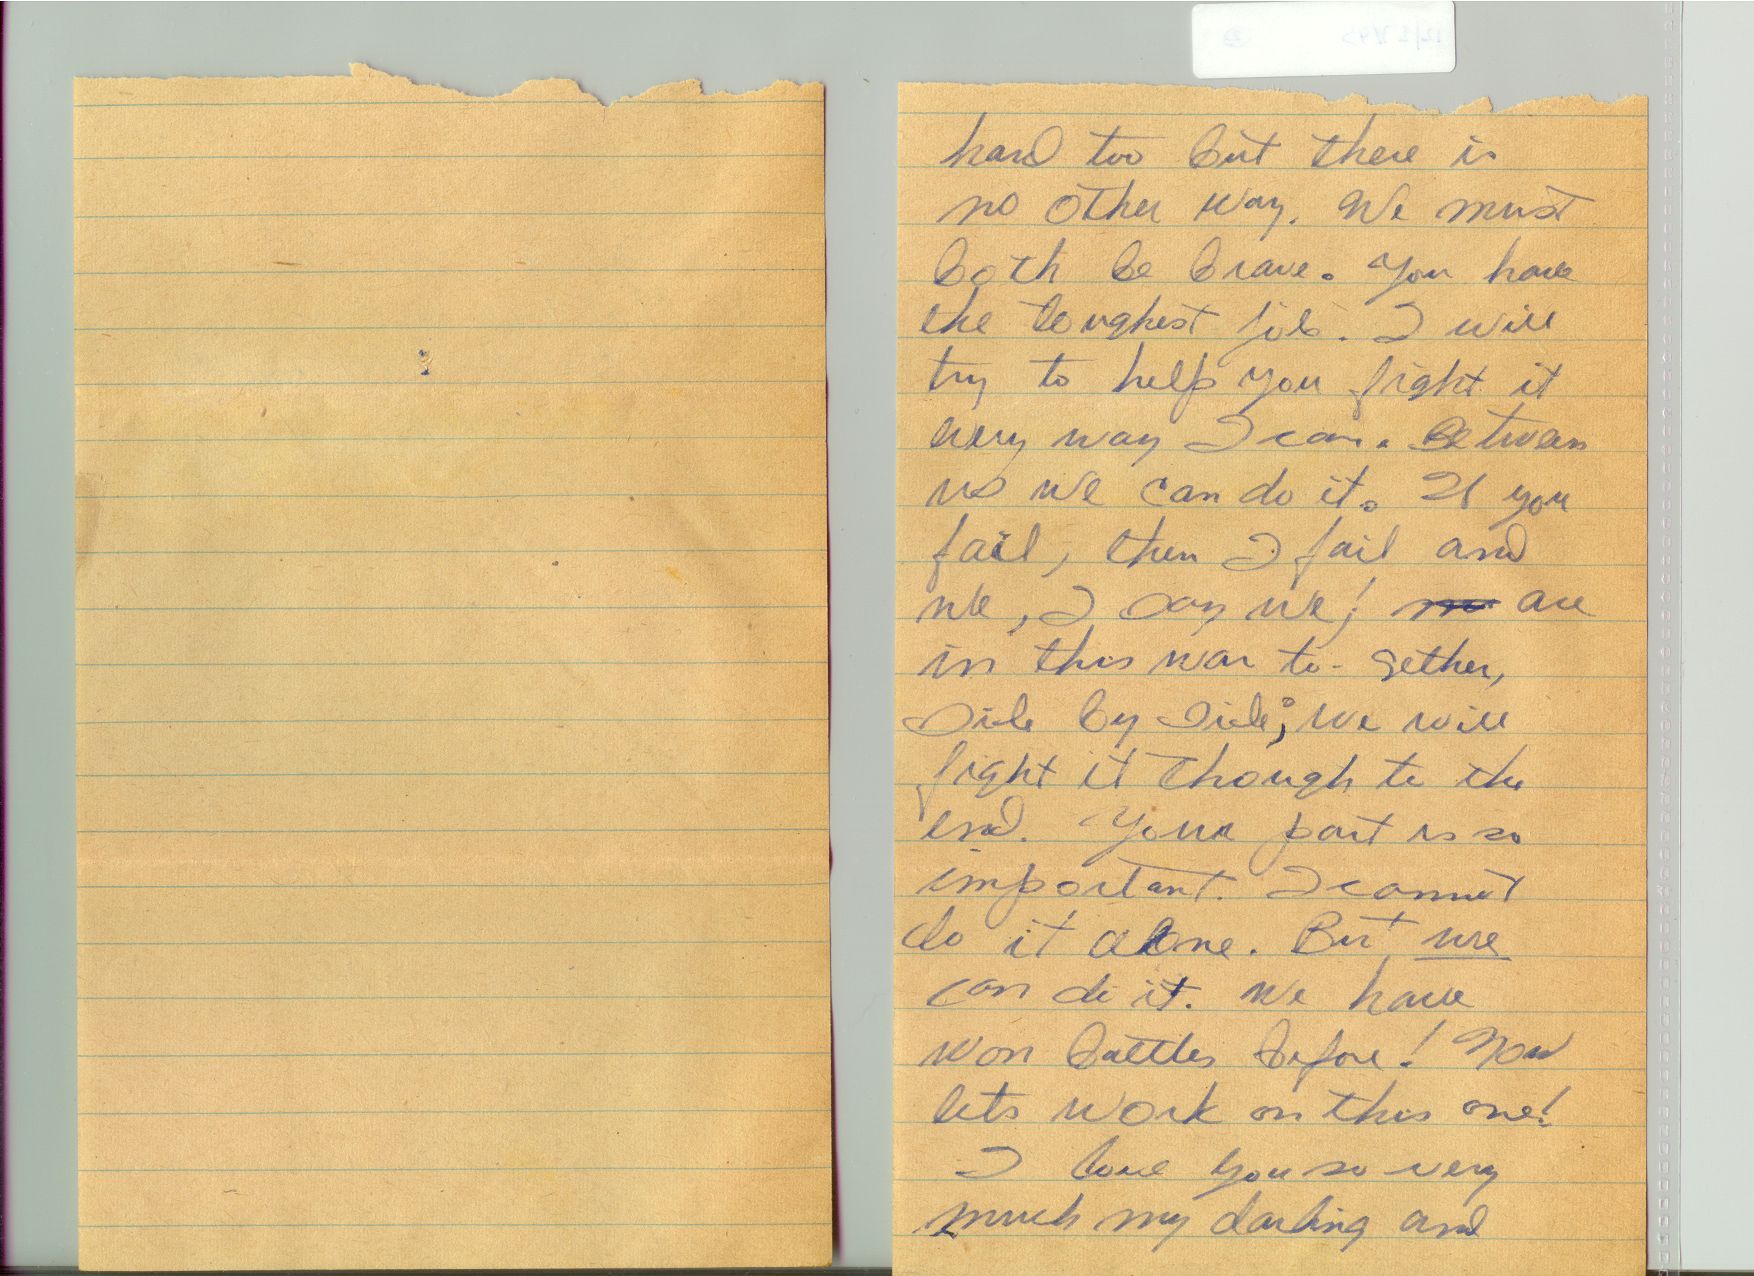 hard too but there is
no other way. We must
both be brave. You have
the toughest job. I will
try to help you fight it
every way I can. Between
us we can do it. If you
fail, then I fail and
we, I say we! are
in this war to-gether,
side by side; we will
fight it though to the
end. Your part is so
important. I cannot
do it alone. But we
can do it. We have
won battles before! Now
lets work on this one!
I love you so very
much my darling and